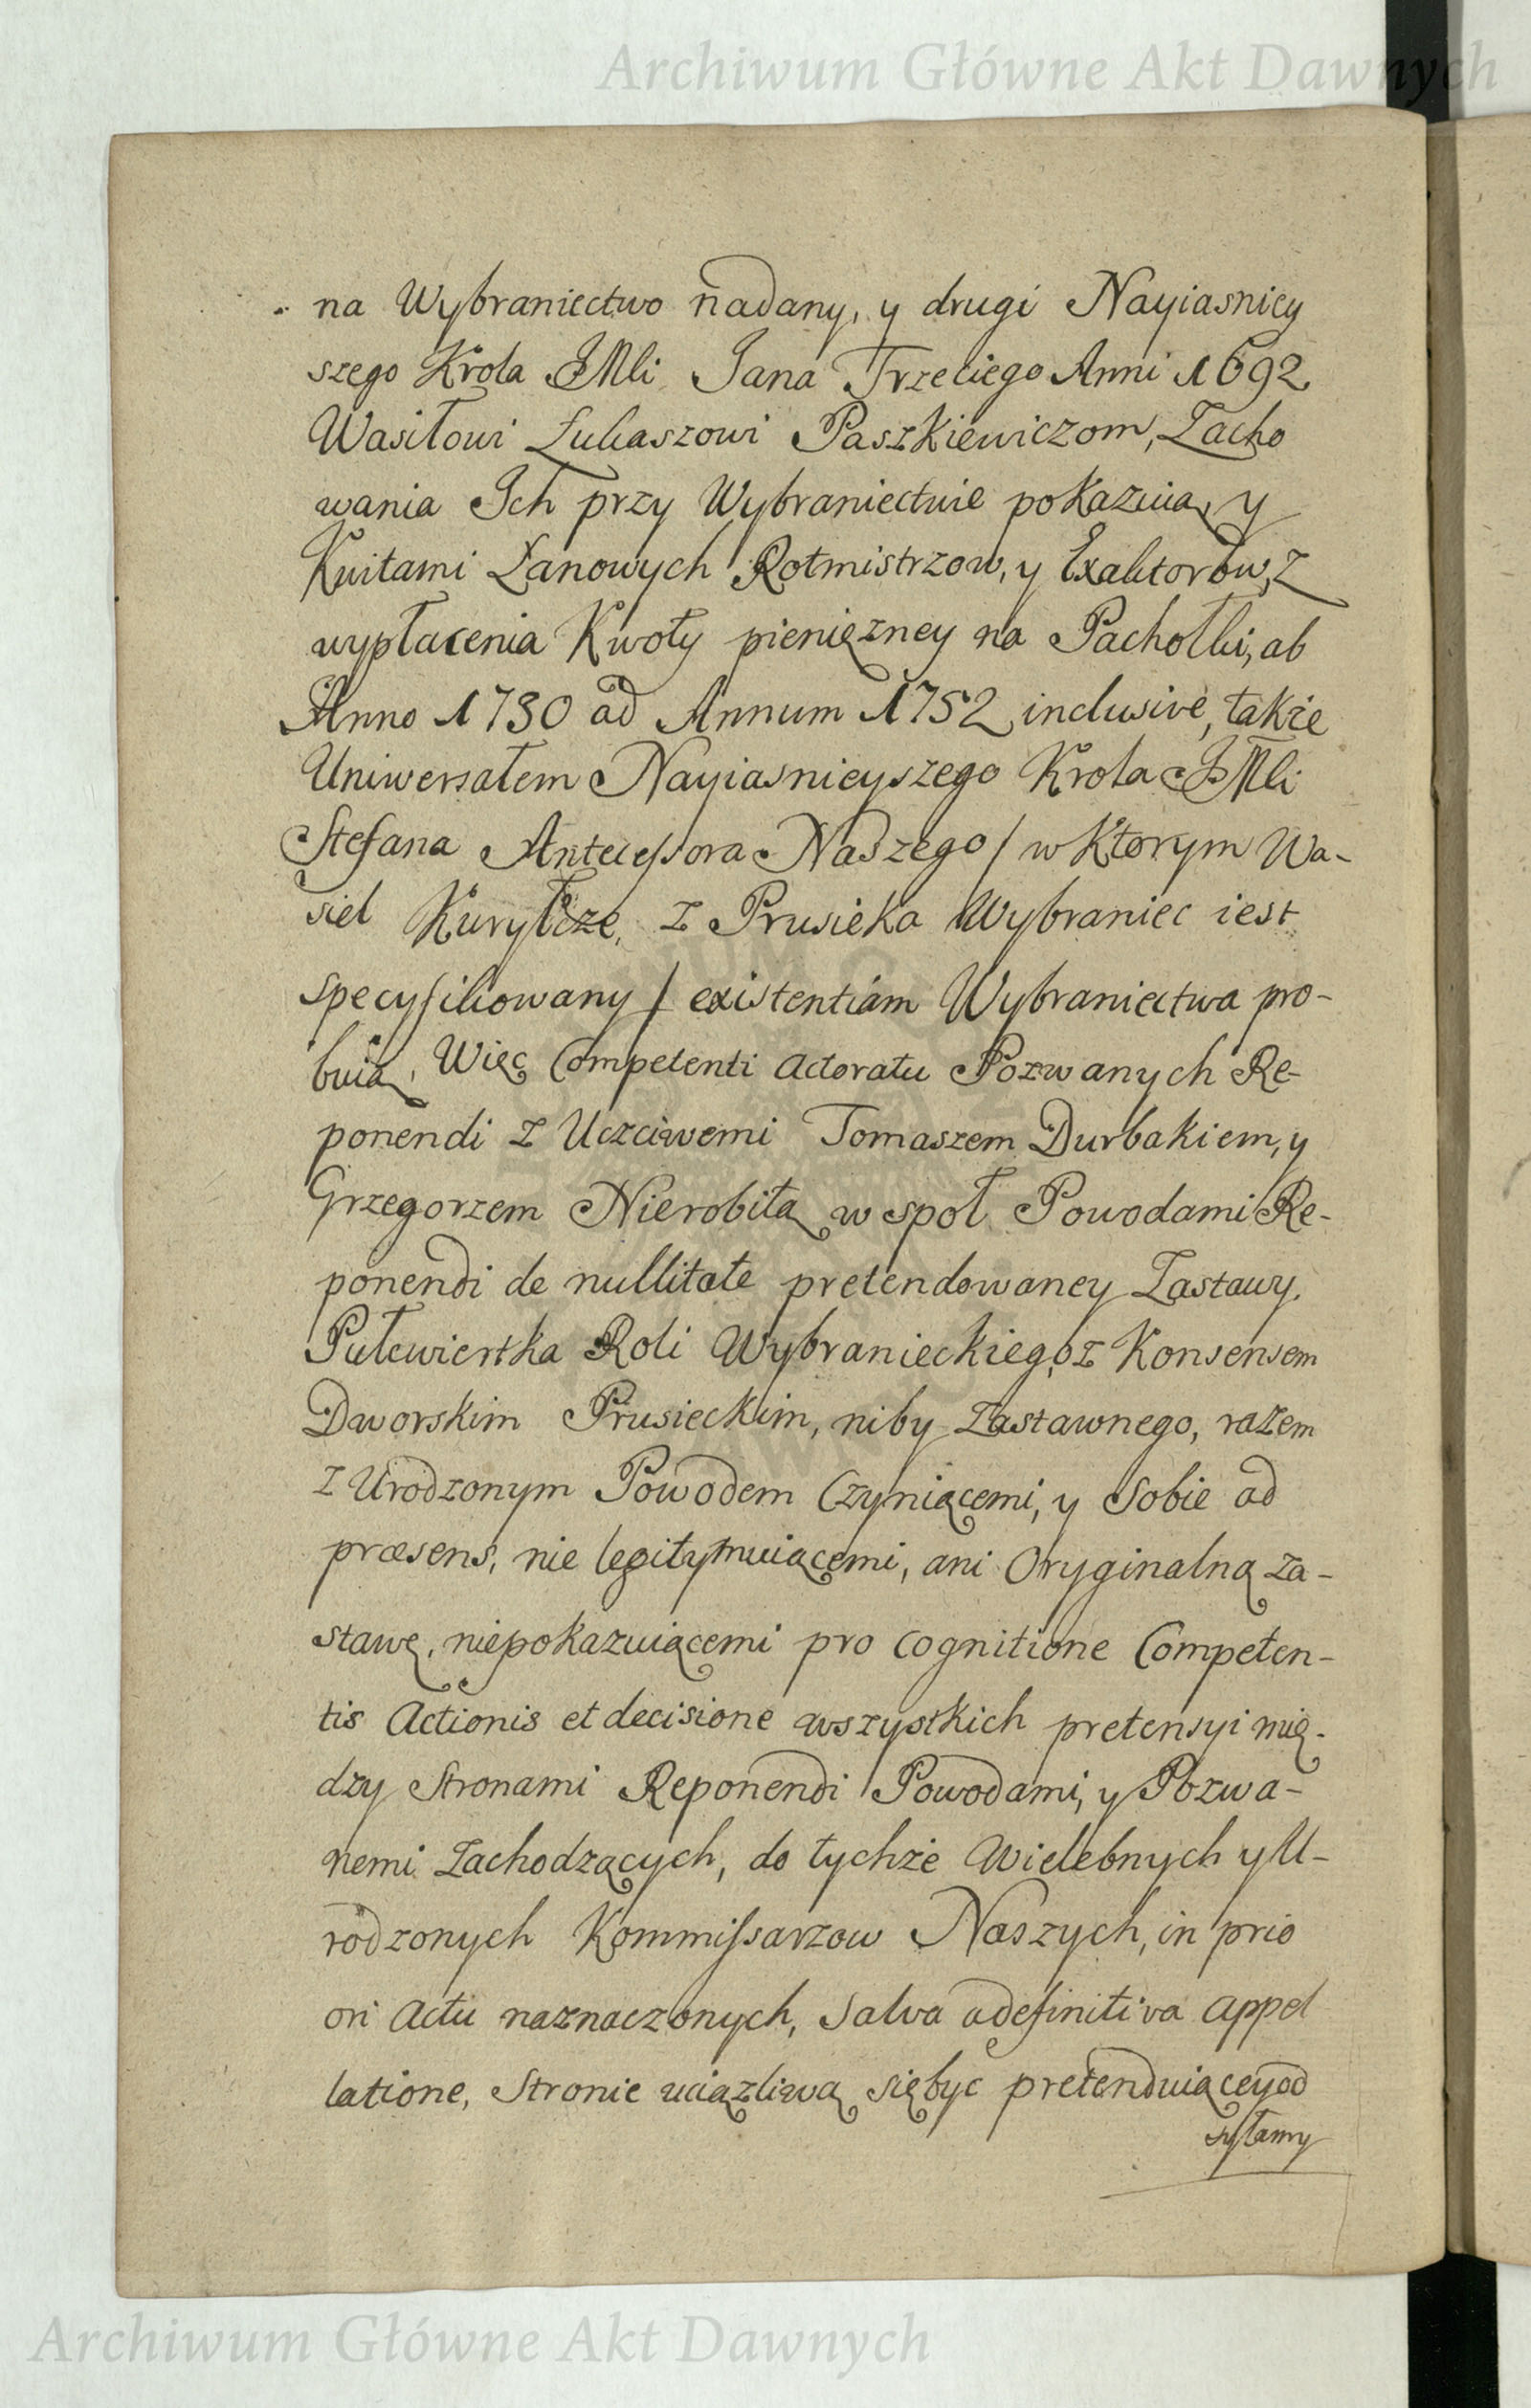 Archiwum Główne Akt Dawnych
na Wybraniectwo nadany, y drugi Nayiasniey
szego Krola JMci Jana Trzeciego Anni 1692
Wasiłowi Łukaszowi Paszkiewiczom, Zacho
wania Ich przy Wybraniectwie pokazuią, y
Kwitami Łanowych Rotmistrzow, y Exaktorow, z
wypłacenia Kwoty pienięzney na Pachołki, ab
Anno 1730 ad Annum 1752 inclusive, także
Uniwersałem Nayiasnieyszego Krola JMci
Stefana Antecessora Naszego / w ktorym Wa-
siel z Prusieka Wybraniec iest
specyfikowany / existentiam Wybraniectwa pro-
buią, Więc Competenti Actoratu Pozwanych Re-
ponendi z Uczciwemi Tomaszem Durbakiem, y
Grzegorzem Nierobiłą wspoł Powodami Re-
ponendi de nullitate pretendowaney Zastawy,
Pułcwiertka Roli Wybranieckiego, z Konsensem
Dworskim Prusieckim, niby Zastawnego, razem
z Urodzonym Powodem Czyniącemi, y Sobie ad
præsens, nie legitymuiącemi, ani Oryginalną za-
stawę, niepokazuiącemi pro cognitione Competen-
tis Actionis et decisione wszystkich pretensyi mię-
dzy Stronami Reponendi Powodami, y Pozwa-
nemi Zachodzących, do tychże Wielebnych y U-
rodzonych Kommissarzow Naszych, in prio
ori Actu naznaczonych, Salva a definitiva appel
latione, Stronie uciązliwą siębyc pretenduiącey od
syłamy
Archiwum Główne Akt Dawnych